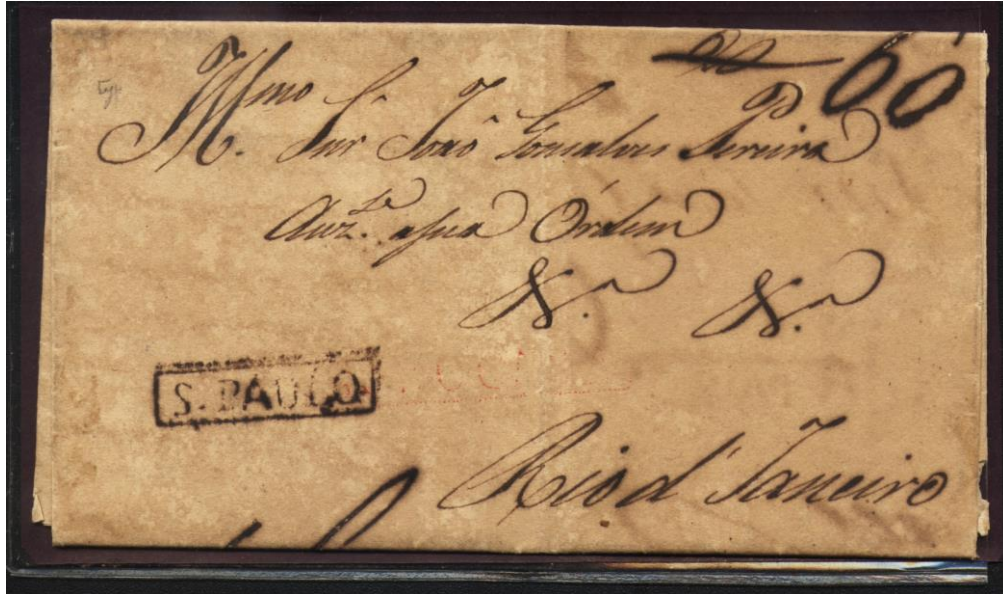 60
Illmo
M. Snr João Gonsalves Pereira
Auz.te asua Órdem
&.a &.a
S. PAULO
Rio d' Janeiro